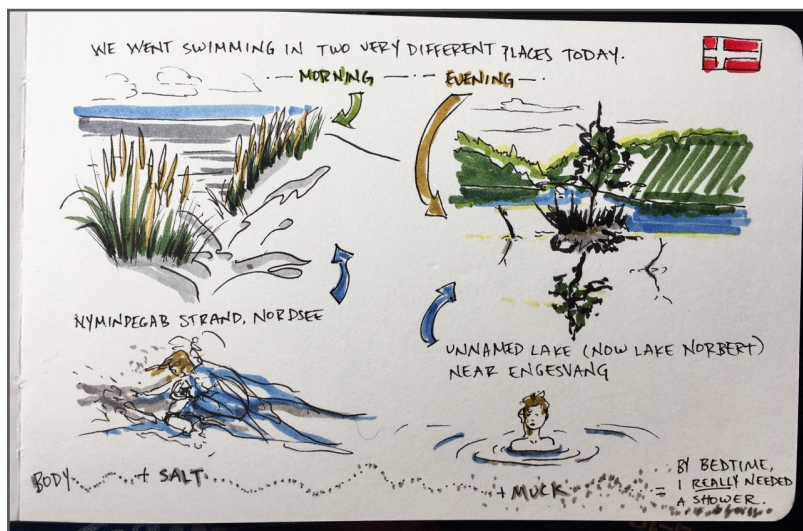 WE WENT SWIMMING IN TWO VERY DIFFERENT PLACES TODAY.
MORNING
EVENING
NYMINDEGAB STRAND, NORDSEE
UNNAMED LAKE (NOW LAKE NORBERT)
NEAR ENGESVANG
BODY + SALT + MUCK =
BY BEDTIME,
I REALLY NEEDED
A SHOWER.